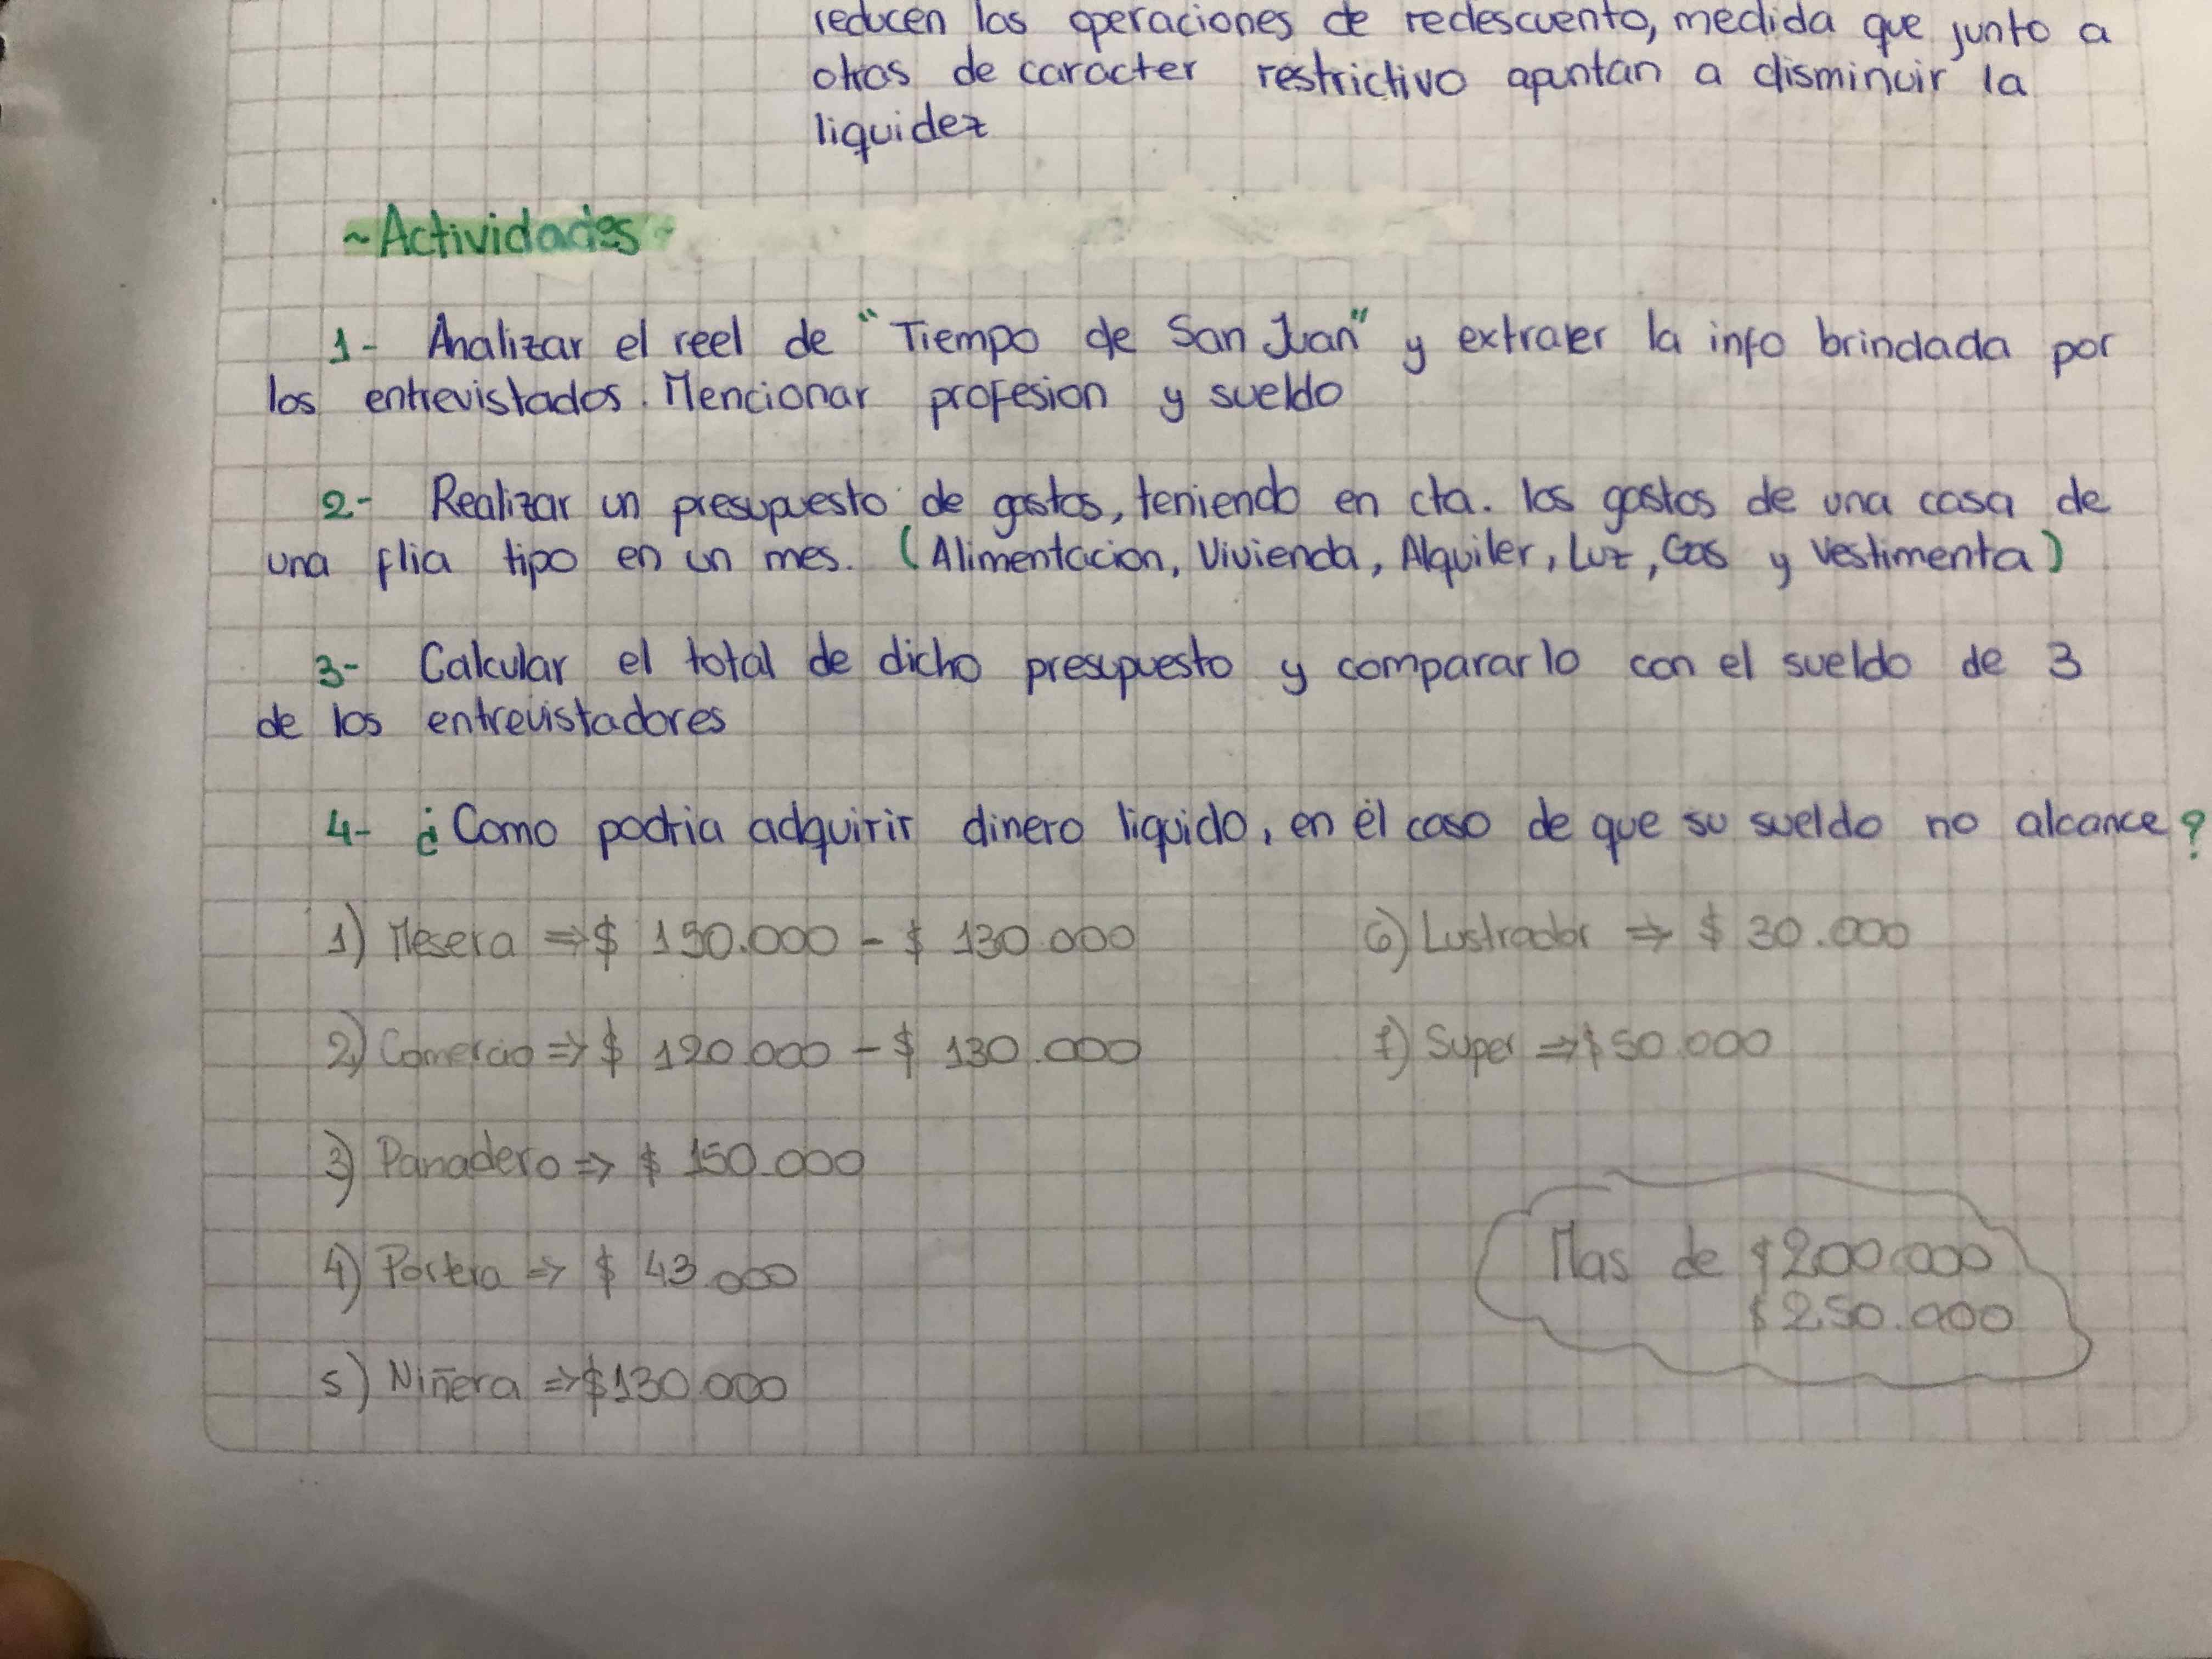 reducen las operaciones de redescuento, medida que junto a
otras de caracter restrictivo apuntan a disminuir la
liquidez
~Actividades~
1- Analizar el reel de "Tiempo de San Juan" y extraer la info brindada por
los entrevistados. Mencionar profesion y sueldo
2- Realizar un presupuesto de gastos, teniendo en cta. los gastos de una casa de
una flia tipo en un mes. (Alimentacion, Vivienda, Alquiler, Luz, Gas y Vestimenta)
3- Calcular el total de dicho presupuesto y compararlo con el sueldo de 3
de los entrevistadores
4- ¿Como podria adquirir dinero liquido, en el caso de que su sueldo no alcance?
1) Mesera => $ 130.000 - $ 130.000
6) Lustrador => $ 30.000
2) Comercio => $ 120.000 - $ 130.000
7) Super => $ 50.000
3) Panadero => $ 150.000
4) Portera => $ 43.000
5) Niñera => $130.000
Mas de $200.000
$250.000